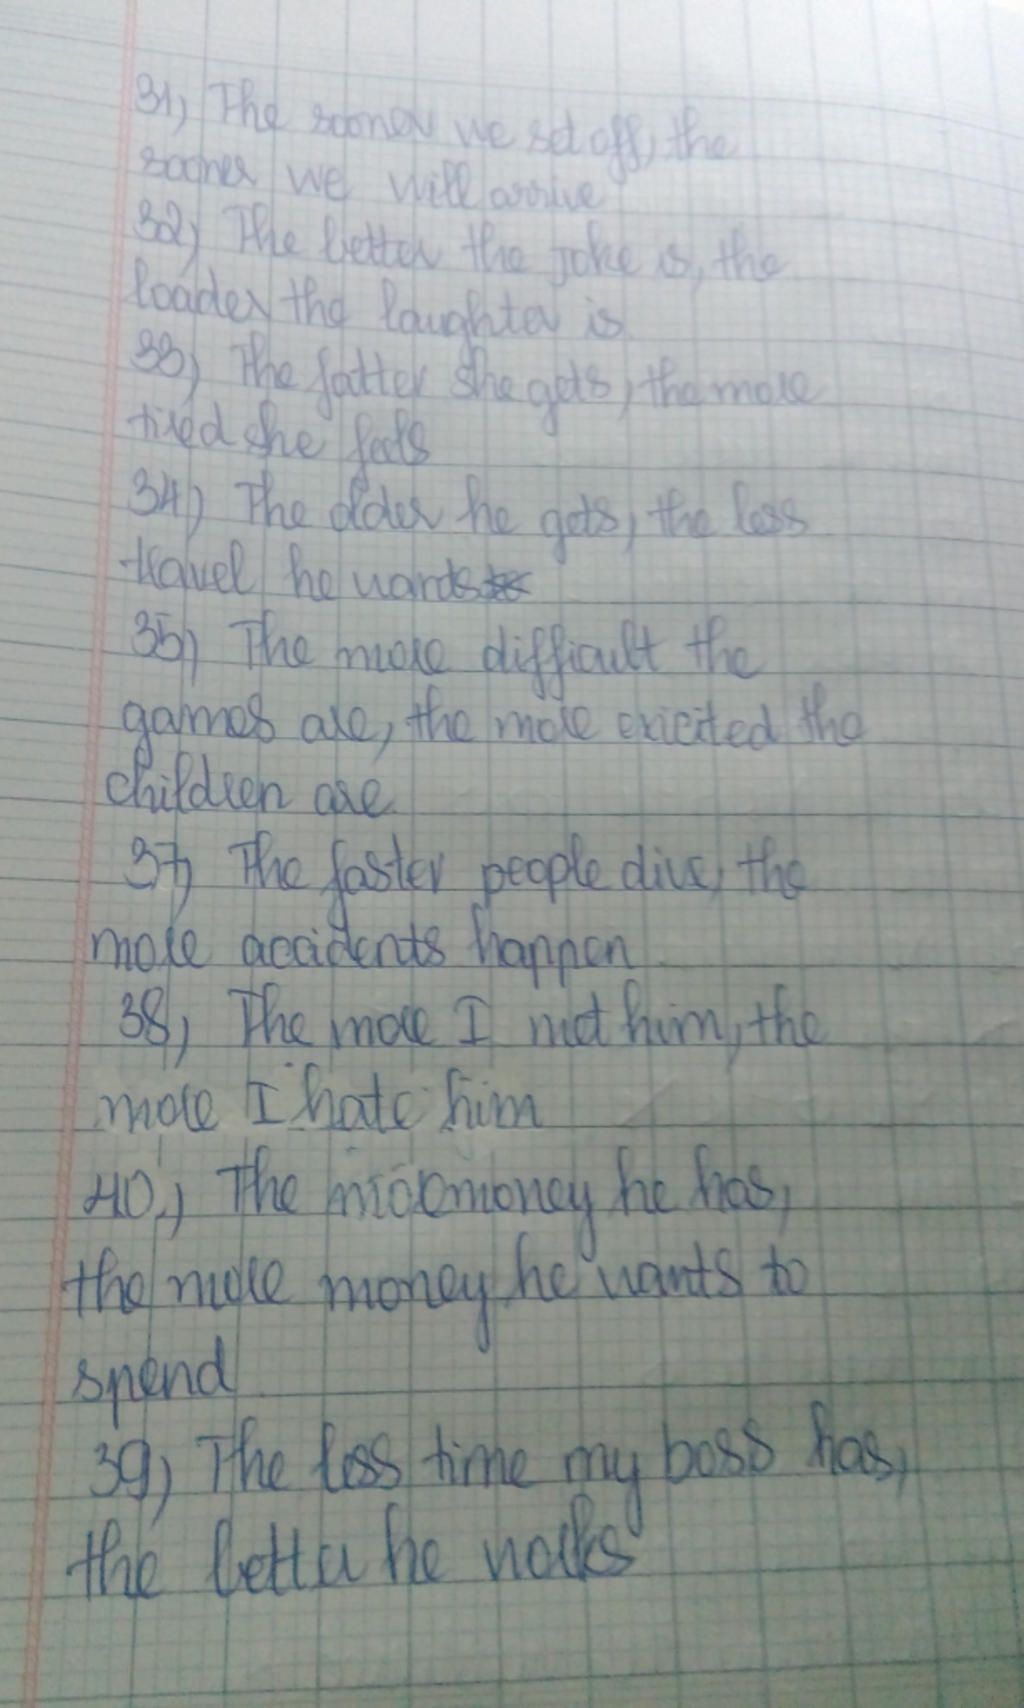 31) The sooner we set off, the
sooner we will arrive
32) The better the joke is, the
loader the laughter is
33) The fatter she gets, the more
tired she feels
34) The older he gets, the less
travel he wants
35) The more difficult the
games are, the more exicited the
children are
37) The faster people dive, the
more accidents happen
38) The more I met him, the
more I hate him
40.) The more money he has,
the more money he wants to
spend
39) The less time my boss has,
the better he works